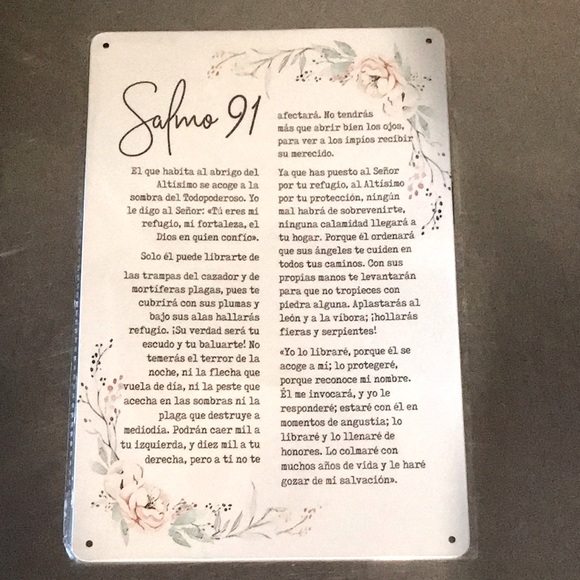 Salmo 91
El que habita al abrigo del
Altísimo se acoge a la
sombra del Todopoderoso. Yo
le digo al Señor: «Tú eres mi
refugio, mi fortaleza, el
Dios en quien confío».
Solo él puede librarte de
las trampas del cazador y de
mortíferas plagas, pues te
cubrirá con sus plumas y
bajo sus alas hallarás
refugio. ¡Su verdad será tu
escudo y tu baluarte! No
temerás el terror de la
noche, ni la flecha que
vuela de día, ni la peste que
acecha en las sombras ni la
plaga que destruye a
mediodía. Podrán caer mil a
tu izquierda, y diez mil a tu
derecha, pero a ti no te
afectará. No tendrás
más que abrir bien los ojos,
para ver a los impíos recibir
su merecido.
Ya que has puesto al Señor
por tu refugio, al Altísimo
por tu protección, ningún
mal habrá de sobrevenirte,
ninguna calamidad llegará a
tu hogar. Porque él ordenará
que sus ángeles te cuiden en
todos tus caminos. Con sus
propias manos te levantarán
para que no tropieces con
piedra alguna. Aplastarás al
león y a la víbora; ¡hollarás
fieras y serpientes!
«Yo lo libraré, porque él se
acoge a mí; lo protegeré,
porque reconoce mi nombre.
Él me invocará, y yo le
responderé; estaré con él en
momentos de angustia; lo
libraré y lo llenaré de
honores. Lo colmaré con
muchos años de vida y le haré
gozar de mi salvación».